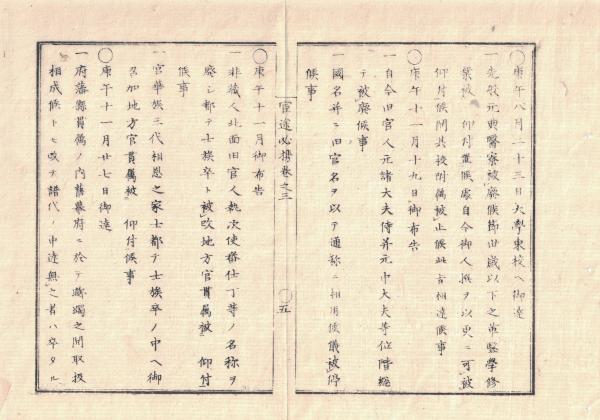 ○庚午八月二十三日大學東校ヘ御達
一先般元典醫寮被廢候節卅歳以下之輩醫學修
業被 仰付置候處自今御人撰ヲ以更ニ可被
仰付候間其校附屬被止候此旨相達候事
○庚午十一月十九日御布告
一自今旧官人元諸大夫侍并元中大夫等位階總
テ被廢候事
一國名并ニ旧官名ヲ以テ通稱ニ相用候儀被停
候事
官途必携巻之三
○五
○庚午十一月御布告
一非藏人北面旧官人執次使番仕丁等ノ名称ヲ
廢シ都テ士族卒ト被改地方官貫屬被 仰付
候事
一宮華族三代相恩之家士都テ士族卒ノ中ヘ御
召加地方官貫屬被 仰付候事
○庚午十一月廿七日御達
一府藩縣貫属ノ内舊幕府ニ於テ 之間取扱
相成候トモ改テ譜代ノ申達無之者ハ卒タル